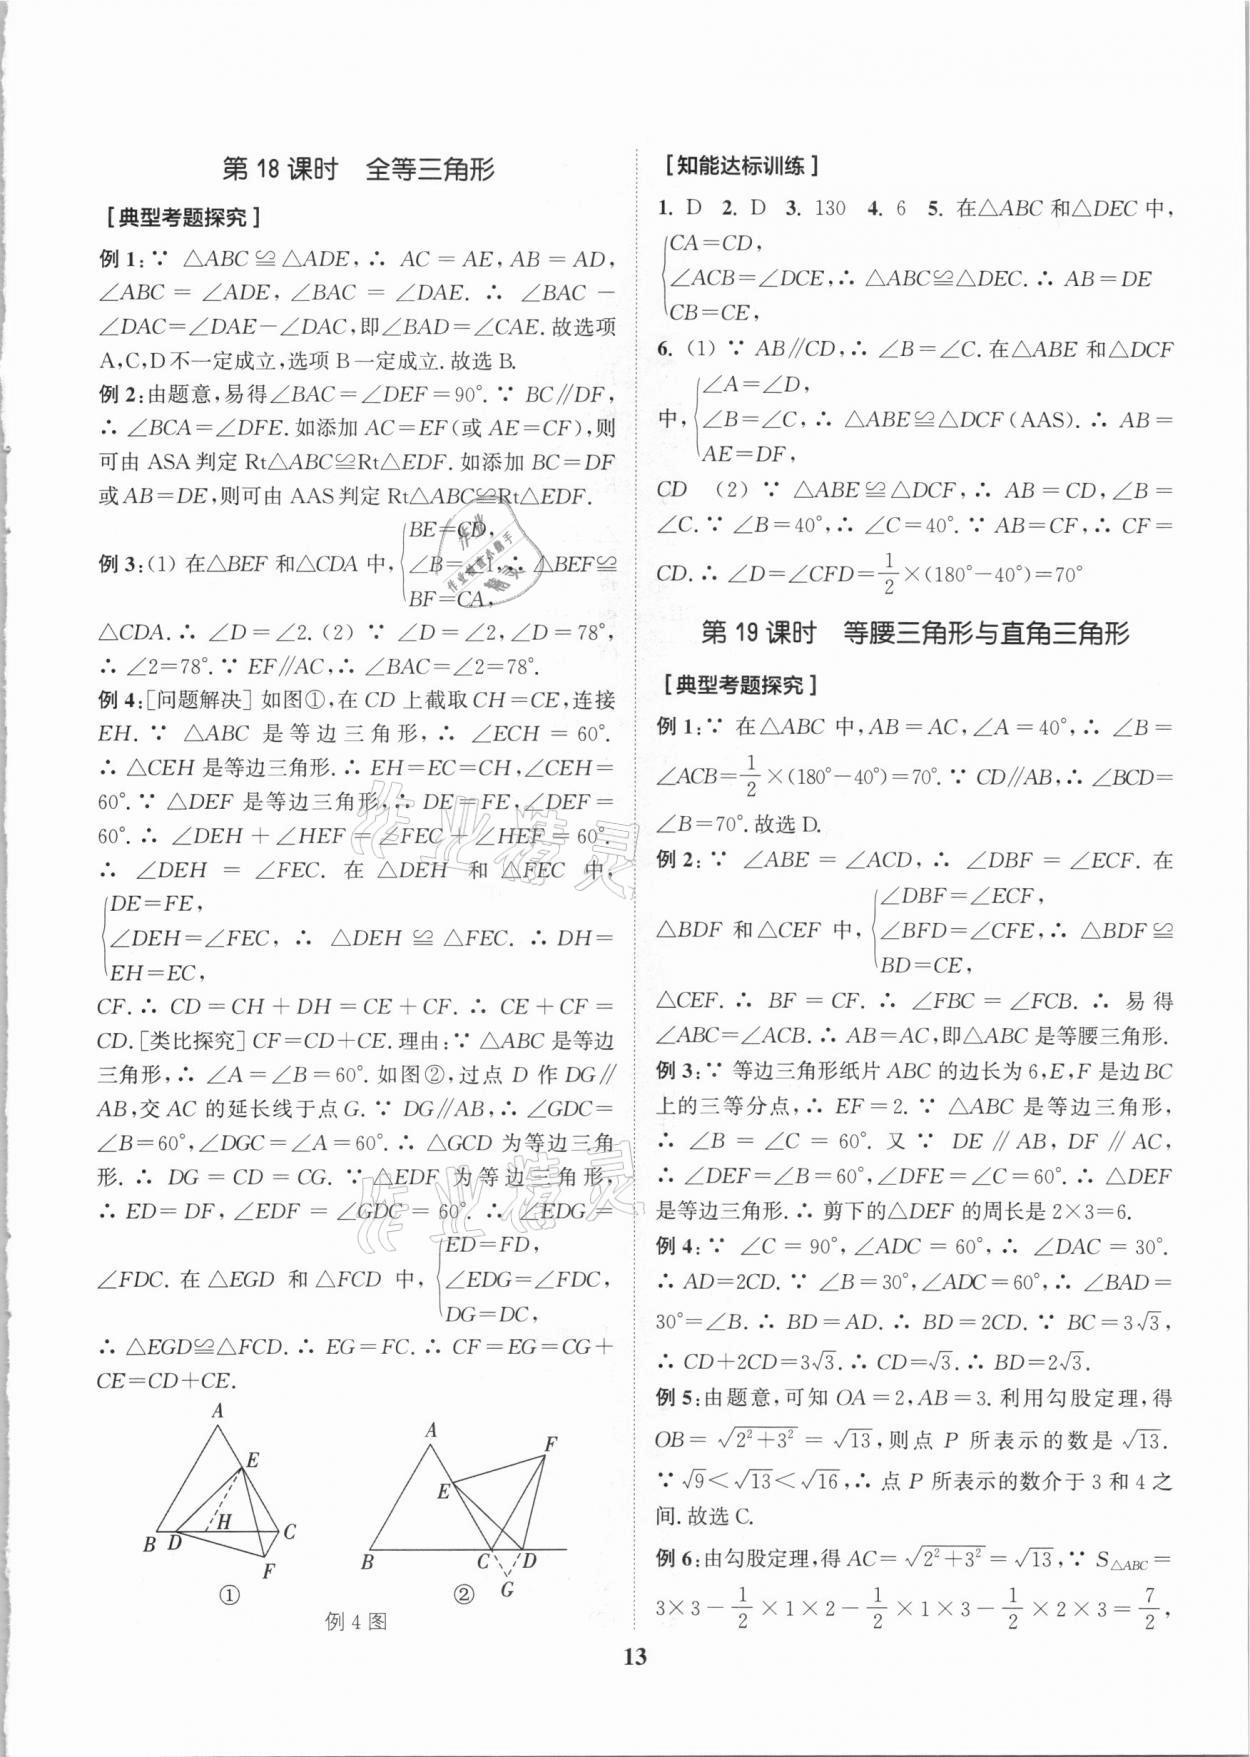 第18课时 全等三角形
[典型考题探究]
例1:∵ △ABC≌△ADE,∴ AC=AE,AB=AD,
∠ABC=∠ADE,∠BAC=∠DAE.∴ ∠BAC-
∠DAC=∠DAE-∠DAC,即∠BAD=∠CAE.故选项
A,C,D不一定成立,选项B一定成立.故选B.
例2:由题意,易得∠BAC=∠DEF=90°.∵ BC∥DF,
∴ ∠BCA=∠DFE.如添加AC=EF(或AE=CF),则
可由ASA判定Rt△ABC≌Rt△EDF.如添加BC=DF
或AB=DE,则可由AAS判定Rt△ABC≌Rt△EDF.
BE=CD,
例3:(1) 在△BEF和△CDA中, ∠B=∠1,∴ △BEF≌
BF=CA,
△CDA.∴ ∠D=∠2.(2) ∵ ∠D=∠2,∠D=78°,
∴ ∠2=78°.∵ EF∥AC,∴ ∠BAC=∠2=78°.
例4:[问题解决] 如图①,在CD上截取CH=CE,连接
EH.∵ △ABC是等边三角形,∴ ∠ECH=60°.
∴ △CEH是等边三角形.∴ EH=EC=CH,∠CEH=
60°.∵ △DEF是等边三角形,∴ DE=FE,∠DEF=
60°.∴ ∠DEH+∠HEF=∠FEC+∠HEF=60°.
∴ ∠DEH=∠FEC.在△DEH和△FEC中,
DE=FE,
∠DEH=∠FEC, ∴ △DEH≌△FEC.∴ DH=
EH=EC,
CF.∴ CD=CH+DH=CE+CF.∴ CE+CF=
CD.[类比探究] CF=CD+CE.理由:∵ △ABC是等边
三角形,∴ ∠A=∠B=60°.如图②,过点D作DG∥
AB,交AC的延长线于点G.∵ DG∥AB,∴ ∠GDC=
∠B=60°,∠DGC=∠A=60°.∴ △GCD为等边三角
形.∴ DG=CD=CG.∵ △EDF为等边三角形,
∴ ED=DF,∠EDF=∠GDC=60°.∴ ∠EDG=
ED=FD,
∠FDC.在△EGD和△FCD中, ∠EDG=∠FDC,
DG=DC,
∴ △EGD≌△FCD.∴ EG=FC.∴ CF=EG=CG+
CE=CD+CE.
A
E
B D H C
F
①
A
F
E
B C D
G
②
例4图
[知能达标训练]
1. D 2. D 3. 130 4. 6 5. 在△ABC和△DEC中,
CA=CD,
∠ACB=∠DCE,∴ △ABC≌△DEC.∴ AB=DE
CB=CE,
6. (1) ∵ AB∥CD,∴ ∠B=∠C.在△ABE和△DCF
∠A=∠D,
中, ∠B=∠C,∴ △ABE≌△DCF(AAS).∴ AB=
AE=DF,
CD (2) ∵ △ABE≌△DCF,∴ AB=CD,∠B=
∠C.∵ ∠B=40°,∴ ∠C=40°.∵ AB=CF,∴ CF=
CD.∴ ∠D=∠CFD=1/2×(180°-40°)=70°
第19课时 等腰三角形与直角三角形
[典型考题探究]
例1:∵ 在△ABC中,AB=AC,∠A=40°,∴ ∠B=
∠ACB=1/2×(180°-40°)=70°.∵ CD∥AB,∴ ∠BCD=
∠B=70°.故选D.
例2:∵ ∠ABE=∠ACD,∴ ∠DBF=∠ECF.在
∠DBF=∠ECF,
△BDF和△CEF中, ∠BFD=∠CFE,∴ △BDF≌
BD=CE,
△CEF.∴ BF=CF.∴ ∠FBC=∠FCB.∴ 易得
∠ABC=∠ACB.∴ AB=AC,即△ABC是等腰三角形.
例3:∵ 等边三角形纸片ABC的边长为6,E,F是边BC
上的三等分点,∴ EF=2.∵ △ABC是等边三角形,
∴ ∠B=∠C=60°.又∵ DE∥AB,DF∥AC,
∴ ∠DEF=∠B=60°,∠DFE=∠C=60°.∴ △DEF
是等边三角形.∴ 剪下的△DEF的周长是2×3=6.
例4:∵ ∠C=90°,∠ADC=60°,∴ ∠DAC=30°.
∴ AD=2CD.∵ ∠B=30°,∠ADC=60°,∴ ∠BAD=
30°=∠B.∴ BD=AD.∴ BD=2CD.∵ BC=3√3,
∴ CD+2CD=3√3.∴ CD=√3.∴ BD=2√3.
例5:由题意,可知OA=2,AB=3.利用勾股定理,得
OB=√(2²+3²)=√13,则点P所表示的数是√13.
∵ √9<√13<√16,∴ 点P所表示的数介于3和4之
间.故选C.
例6:由勾股定理,得AC=√(2²+3²)=√13,∵ S△ABC=
3×3-1/2×1×2-1/2×1×3-1/2×2×3=7/2,
13
作业精灵
作业精灵